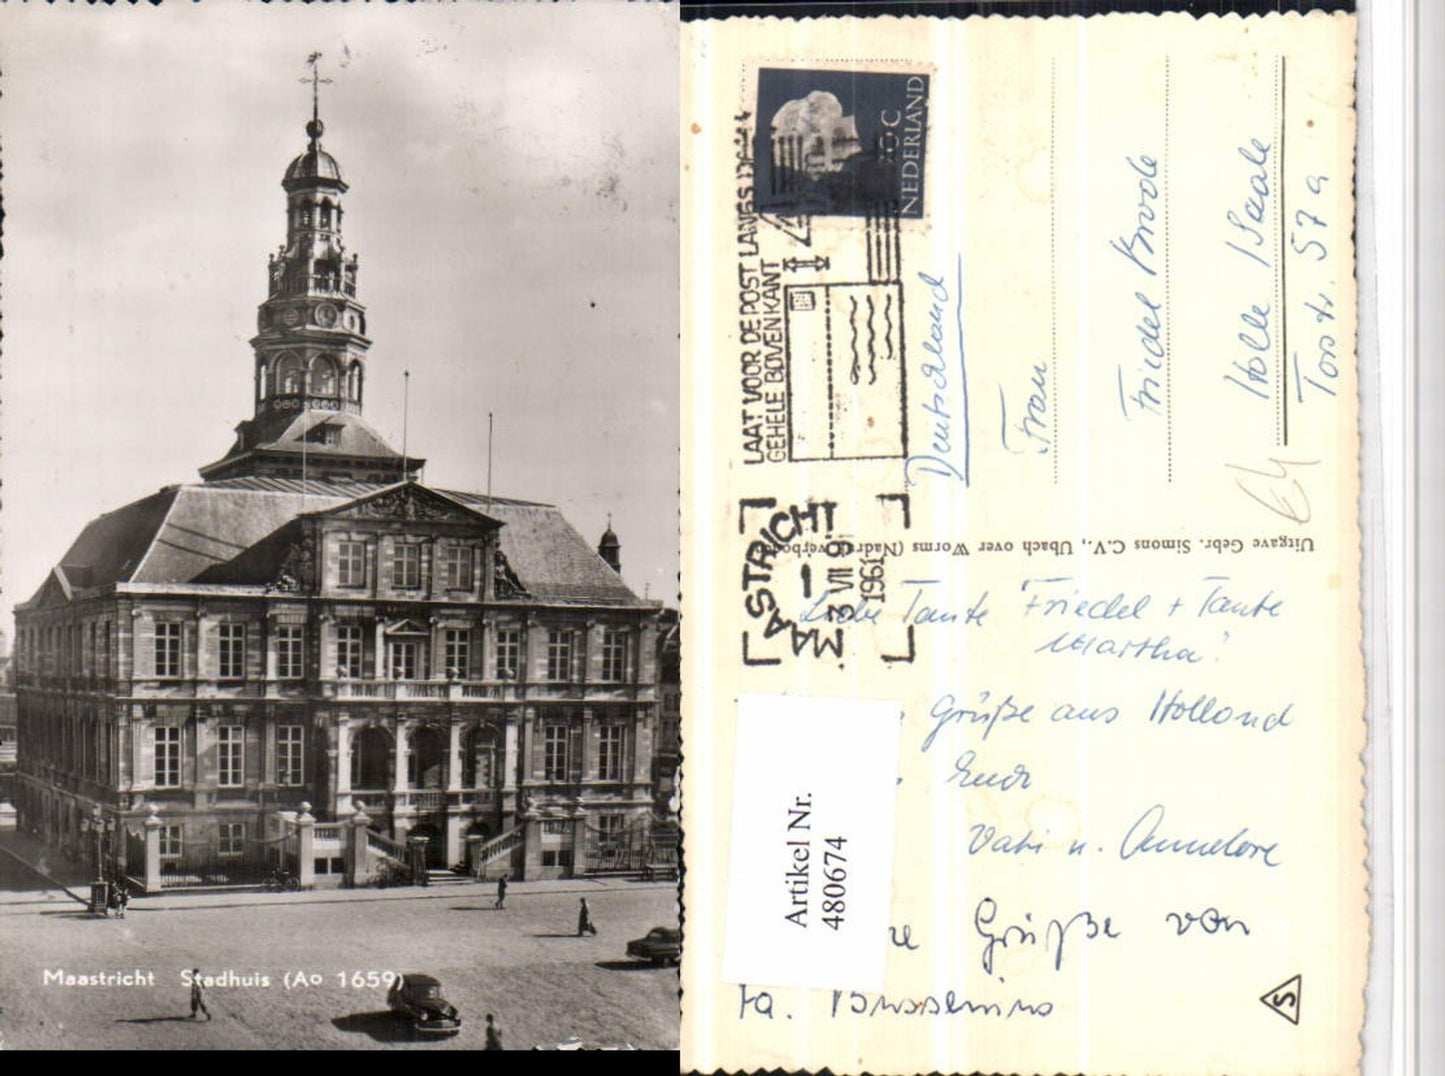 Maastricht Stadhuis (Ao 1659)
NEDERLAND
LAAT VOOR DE POST LANGS
GEHELE BOVENKANT
MAASTRICHT
3 VII
1961
Deutschland
Frau
Friedel
Halle / Saale
Torstr. 57a
Uitgave Gebr. Simons C.V., Ubach over Worms (Nadruk verboden)
Liebe Tante Friedel + Tante
Martha!
Grüße aus Holland
Euch
Vati u. Annelore
Grüße von
Fa.
Artikel Nr.
480674
S